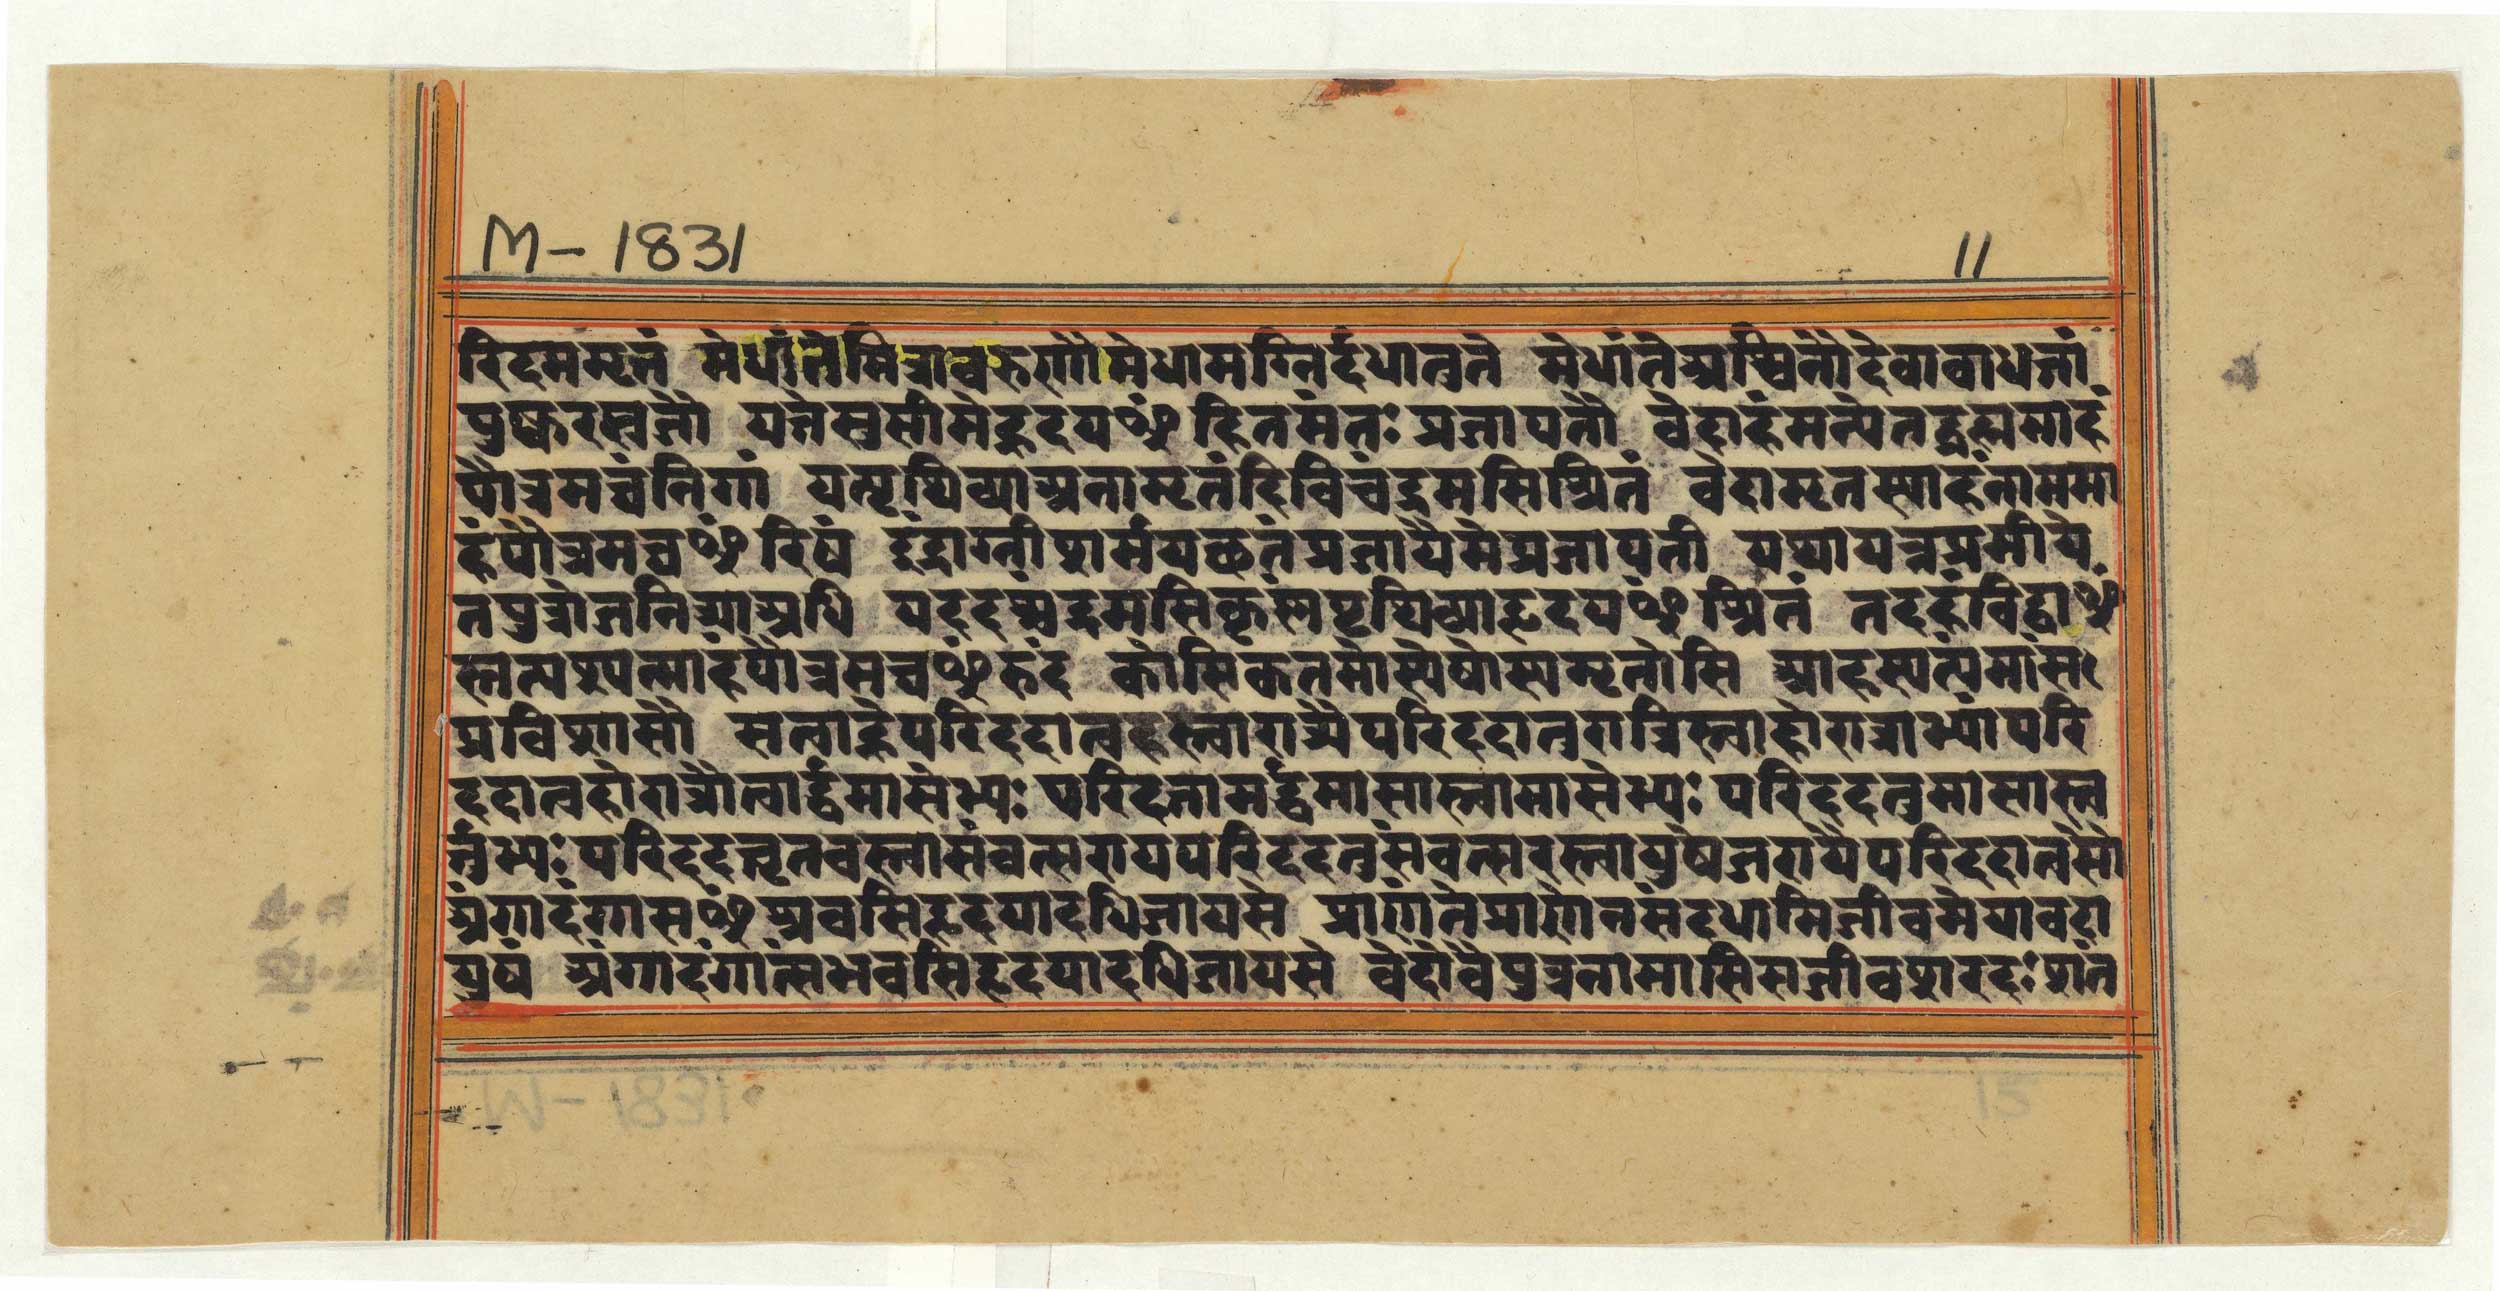 M-1831 11
रिदममृतं मेधांतेमित्रावरुणौमेधामग्निर्दधातुते मेधांतेअश्विनौदेवावाधत्तां
पुष्करस्रजौ यत्तेसुसीमेहृदयꣳहितमंतः प्रजापतौ वेदाहंमन्येतद्ब्रह्ममाहं
पौत्रमघंनिगां यत्पृथिव्याअनामृतंदिविचंद्रमसिश्रितं वेदामृतस्याहंनाममा
हंपौत्रमघꣳरिषं इंद्राग्नीशर्मयछतंप्रजायैमेप्रजापती यथायन्नप्रमीये
तपुत्रोजनित्र्याअधि यददश्चंद्रमसिकृष्णंपृथिव्याहृदयꣳश्रितं तदहंविद्वाꣳ
स्तत्पश्यन्माहंपौत्रमघꣳरुदं कोसिकतमोस्येषोस्यमृतोसि आहस्पत्यंमासं
प्रविशासौ सत्वाह्नेपरिददात्वहस्त्वारात्र्यैपरिददातुरात्रिस्त्वाहोरात्राभ्यांपरि
ददात्वहोरात्रौत्वार्द्धमासेभ्यः परिदत्तामर्द्धमासास्त्वामासेभ्यः परिददतुमासास्त्व
र्तुभ्यः परिददत्वृतवस्त्वासंवत्सरायपरिददतुसंवत्सरस्त्वायुषेजरायैपरिददात्वसौ
अंगादंगासꣳश्रवसिहृदयादधिजायसे प्राणंतेप्राणेनसंदधामिजीवमेयावदा
युषं अंगादंगात्संभवसिहृदयादधिजायसे वेदोवैपुत्रनामासिसजीवशरदः शत